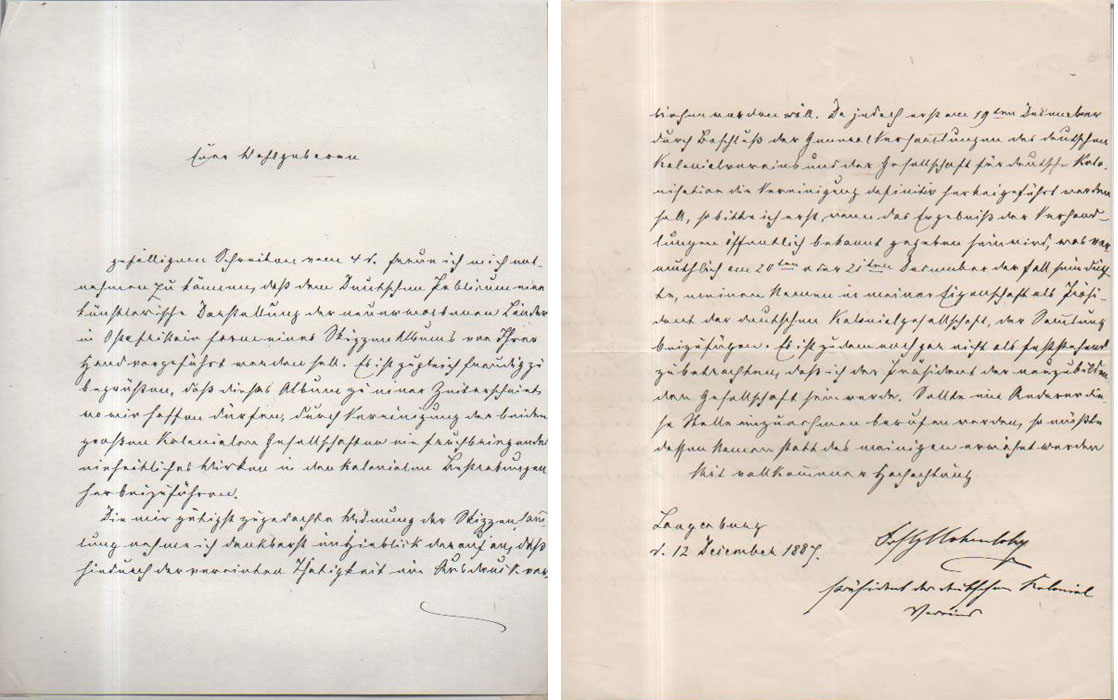 Euer Wohlgeboren
gefälligem Schreiben vom 4 d. freue ich mich ent-
nehmen zu können, daß dem Deutschen Publicum eine
künstlerische Darstellung der neuerworbenen Länder
in Ostafrika in Form eines Skizzen Albums von Ihrer
Hand vorgeführt werden soll. Es ist zugleich freudig zu
begrüßen, daß dieses Album zu einer Zeit erscheint,
wo wir hoffen dürfen, durch Vereinigung der beiden
großen Kolonialen Gesellschaften ein fruchtbringendes
einheitliches Wirken in den kolonialen Bestrebungen
herbeizuführen.
Die mir gütigst zugedachte Widmung der Skizzensamm
lung nehme ich dankbarst im Hinblick darauf an, daß
hiedurch der vereinten Thätigkeit ein Ausdruck ver-
liehen werden soll. Da jedoch erst am 19ten Dezember
durch Beschluß der General Verhandlungen des deutschen
Kolonialvereins und der Gesellschaft für deutsche Kolo-
nisation die Vereinigung definitiv herbeigeführt werden
soll, so bitte ich erst, wenn das Ergebniß der Verhand-
lungen öffentlich bekannt gegeben sein wird, was ver
muthlich am 20ten oder 21ten Dezember der Fall sein dürf
te, meinen Namen in meiner Eigenschaft als Präsi-
dent der deutschen Kolonialgesellschaft, der Samlung
beizufügen. Es ist zudem noch gar nicht als feststehend
zu betrachten, daß ich der Präsident der neuzubilden
den Gesellschaft sein werde. Sollte ein Anderer die
se Stelle einzunehmen berufen werden, so müßte
dessen Namen statt des meinigen erwähnt werden
Mit vollkommener Hochachtung
Langenburg
d. 12 Dezember 1887.
Hohenlohe
Präsident des deutschen Kolonial
Vereins